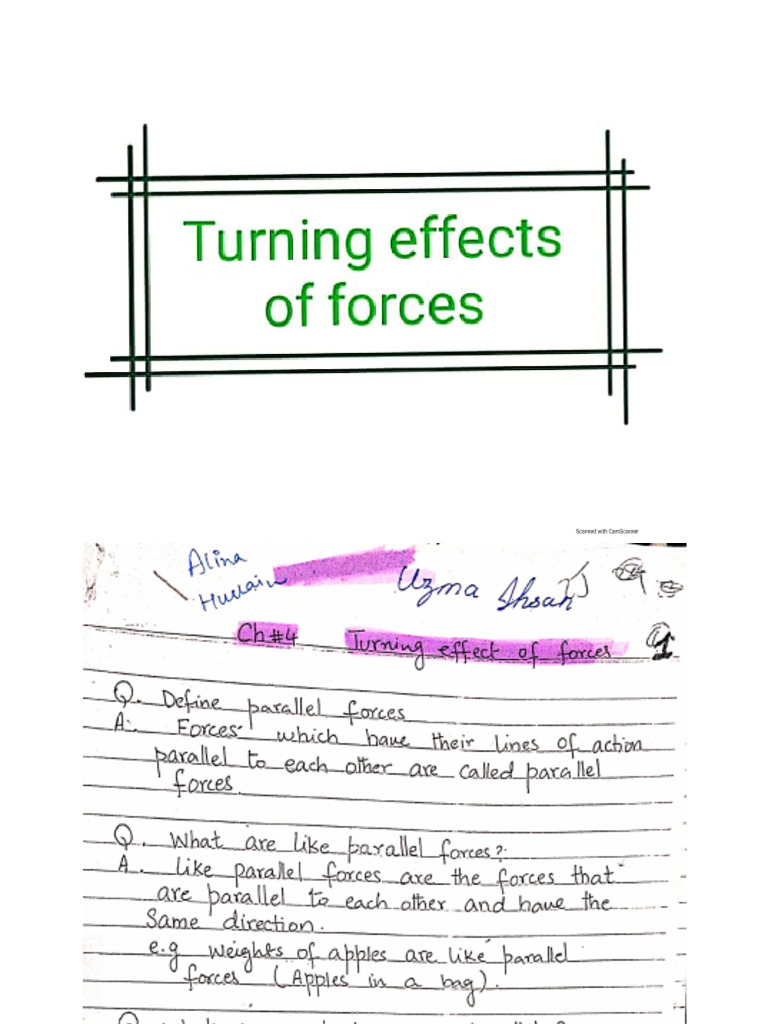 Turning effects
of forces
Scanned with CamScanner
Alina
Hussain
Uzma Ihsan
Ch#4 Turning effect of forces
Q. Define parallel forces
A. Forces which have their lines of action
parallel to each other are called parallel
forces.
Q. What are like parallel forces?
A. Like parallel forces are the forces that
are parallel to each other and have the
Same direction.
e.g weights of apples are like parallel
forces (Apples in a bag).